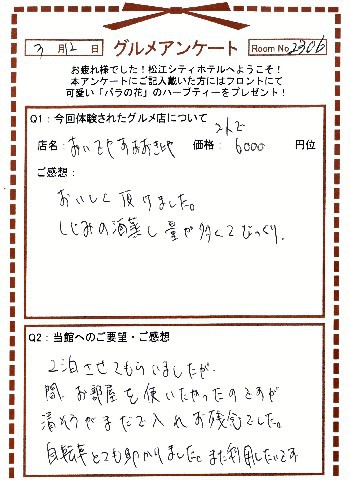 3月12日 グルメアンケート Room No.2306
お疲れ様でした！松江シティホテルへようこそ！
本アンケートにご記入戴いた方にはフロントにて
可愛い「バラの花」のハーブティーをプレゼント！
Q1：今回体験されたグルメ店について 2人で
店名： 価格： 6000 円位
ご感想：
おいしく頂けました。
しじみの酒蒸し量が多くてびっくり。
Q2：当館へのご要望・ご感想
2泊させてもらいましたが、
間、お部屋を使いたかったのですが
清そうがまだで入れずお残念でした。
自転車とても助かりました。また利用したいです